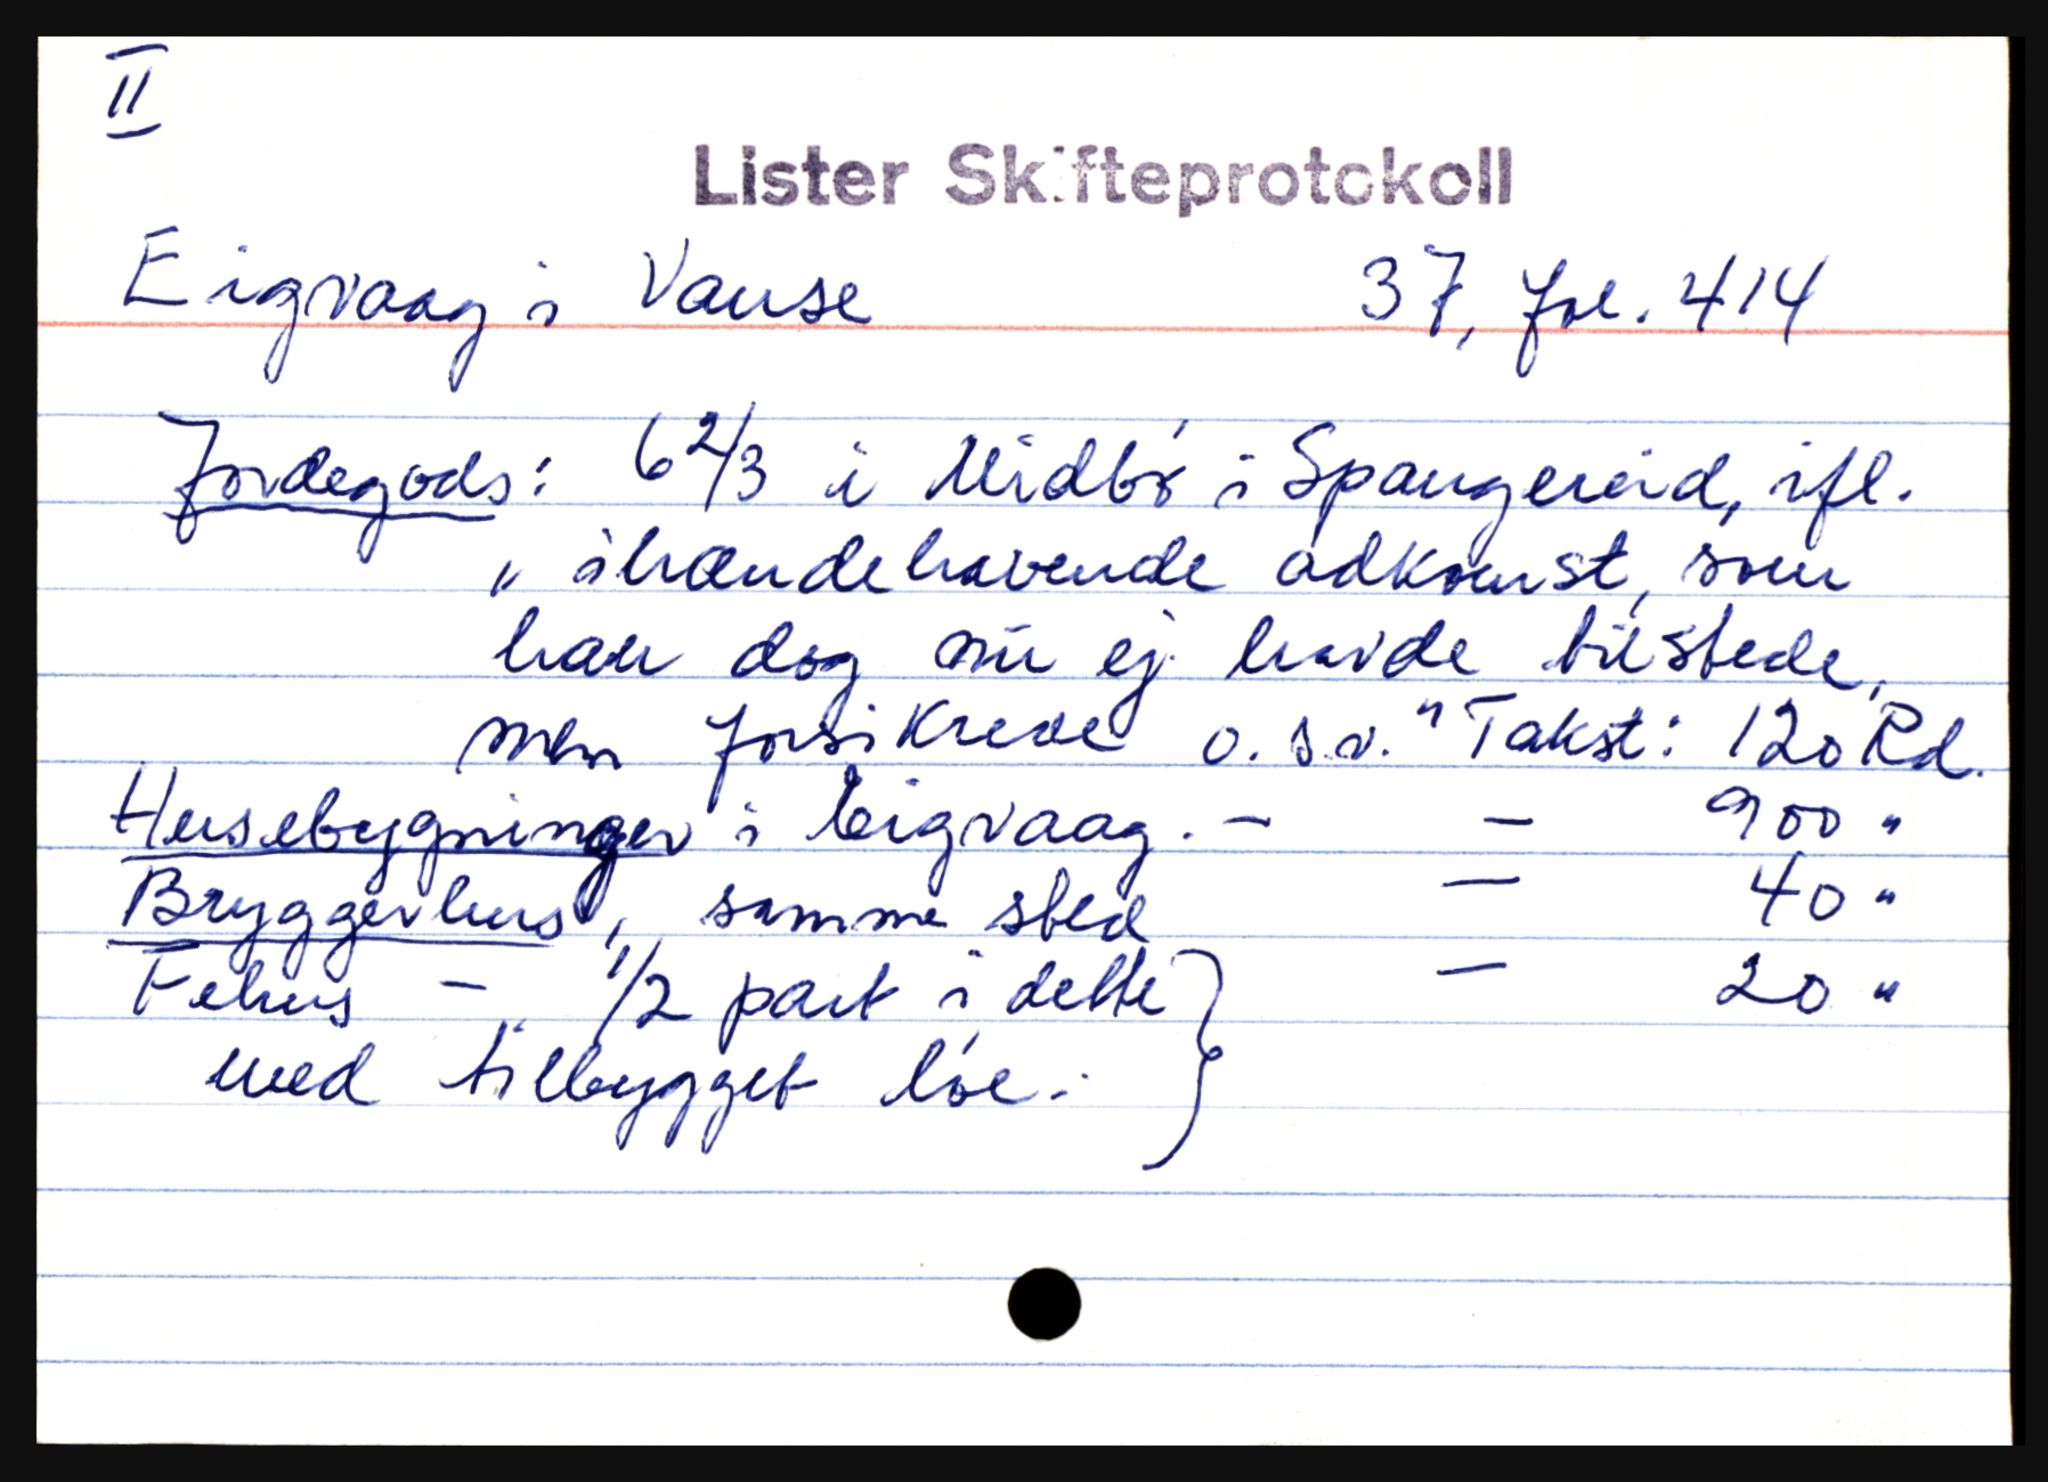 II
Lister Skifteprotokoll
Eigvaag i Vanse 37, fol. 414
Jordegods: 6 2/3 i Midbø i Spangereid, ifl.
„ ihændehavende adkomst, som
han dog nu ej havde tilstede,
men forsikrede o.s.v." Takst: 120 Rd.
Husebygninger i Eigvaag. — — 900 "
Bryggerhus, samme sted — 40 "
Fehus — 1/2 part i dette } — 20 "
med tilbygget løe.